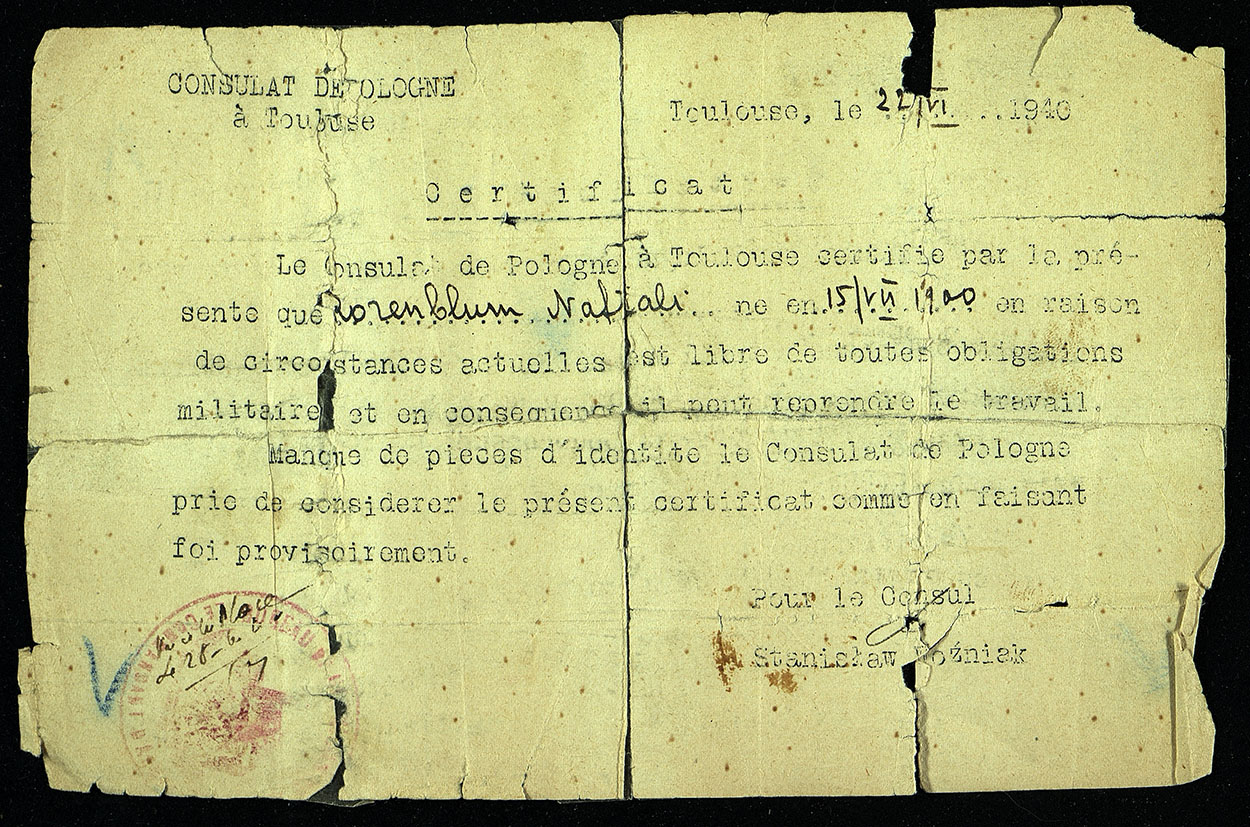 CONSULAT DE POLOGNE
à Toulouse
Toulouse, le 22/VI 1940
Certificat
Le Consulat de Pologne à Toulouse certifie par la pré-
sente que Rozenblum Naftali ne en 15/VII 1900 en raison
de circostances actuelles est libre de toutes obligations
militaire et en consequence il peut reprendre le travail.
Manque de pieces d'identite le Consulat de Pologne
prie de considerer le présent certificat comme en faisant
foi provisoirement.
Pour le Consul
Stanisław Woźniak